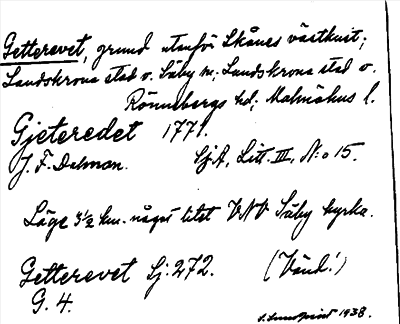 Getterevet, grund utanför Skånes västkust;
Landskrona stad o. Säby sn; Landskrona stad o.
Rönnebergs hd; Malmöhus l.
Gjeteredet 1771.
J. F. Dalman. Sj.A, Litt. III, N:o 15.
Läge 3½ km. något litet VNV Säby kyrka.
Getterevet Sj: 272. (Vänd!)
G. 4.
S. Lundqvist 1938.